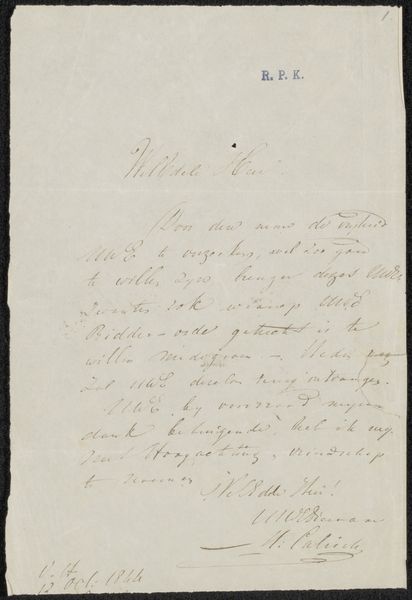 1
R. P. K.
WelEdele Heer!
Door deze neme de vryheid
UWE te verzoeken, wel zoo goed
te willen zyn brenger dezes UWE
waarop UWE
Ridder-orde gehecht is te
willen medegeven. - Heden
zal UWE dezelve terug ontvangen.
UWE by voorraad mynen
dank betuigende, heb ik
Hoogachting & vriendschap
te noemen
WelEdele Heer!
UWEDienaar
M. Calisch
Oct. 1844